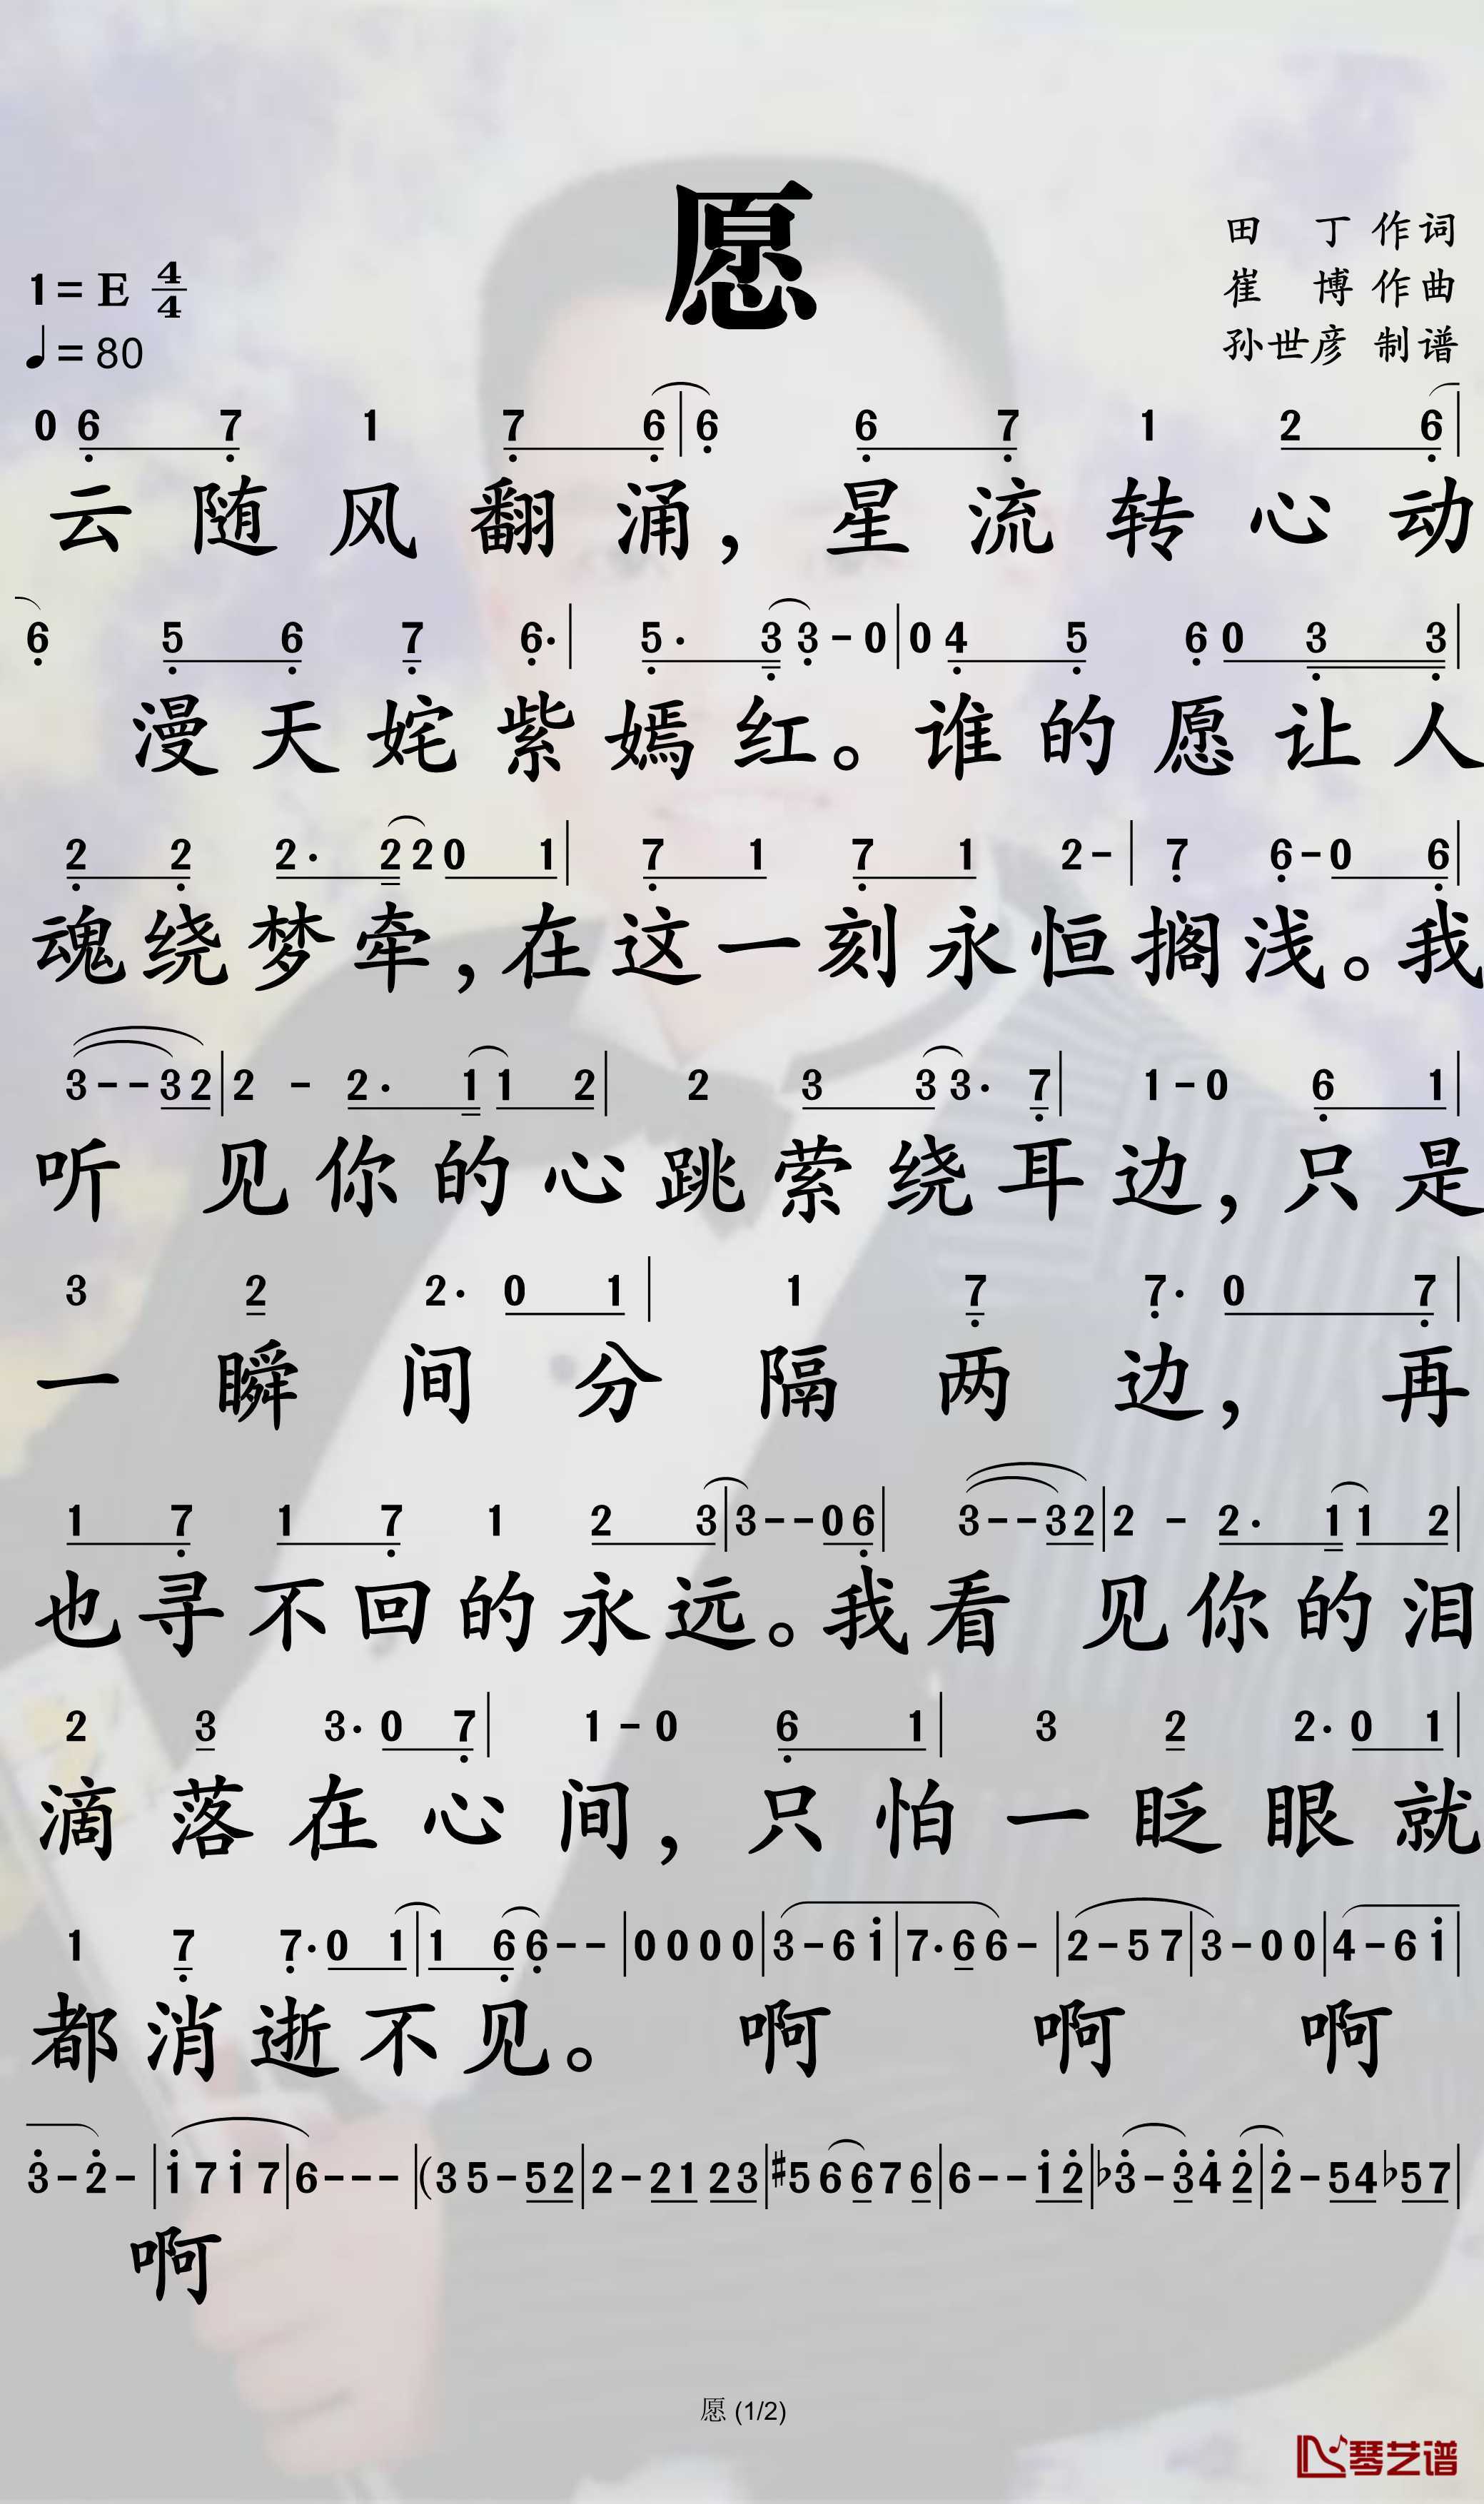 愿
田 丁 作词
崔 博 作曲
孙世彦 制谱
1=E 4/4
♩=80
0 6 7 1 7 6 | 6 6 7 1 2 6 |
云随风翻涌，星流转心动
6 5 6 7 6· | 5· 3 3 - 0 | 0 4 5 6 0 3 3 |
漫天姹紫嫣红。谁的愿让人
2 2 2· 2 2 0 1 | 7 1 7 1 2 - | 7 6 - 0 6 |
魂绕梦牵，在这一刻永恒搁浅。我
3 - - 3 2 | 2 - 2· 1 1 2 | 2 3 3 3· 7 | 1 - 0 6 1 |
听见你的心跳萦绕耳边，只是
3 2 2· 0 1 | 1 7 7· 0 7 |
一瞬间分隔两边，再
1 7 1 7 1 2 3 | 3 - - 0 6 | 3 - - 3 2 | 2 - 2· 1 1 2 |
也寻不回的永远。我看见你的泪
2 3 3· 0 7 | 1 - 0 6 1 | 3 2 2· 0 1 |
滴落在心间，只怕一眨眼就
1 7 7· 0 1 | 1 6 6 - - | 0 0 0 0 | 3 - 6 1 | 7· 6 6 - | 2 - 5 7 | 3 - 0 0 | 4 - 6 1 |
都消逝不见。 啊 啊 啊
3 - 2 - | 1 7 1 7 | 6 - - - | (3 5 - 5 2 | 2 - 2 1 2 3 | #5 6 6 7 6 | 6 - - 1 2 | b3 - 3 4 2 | 2 - 5 4 b5 7 |
啊
愿 (1/2)
琴艺谱